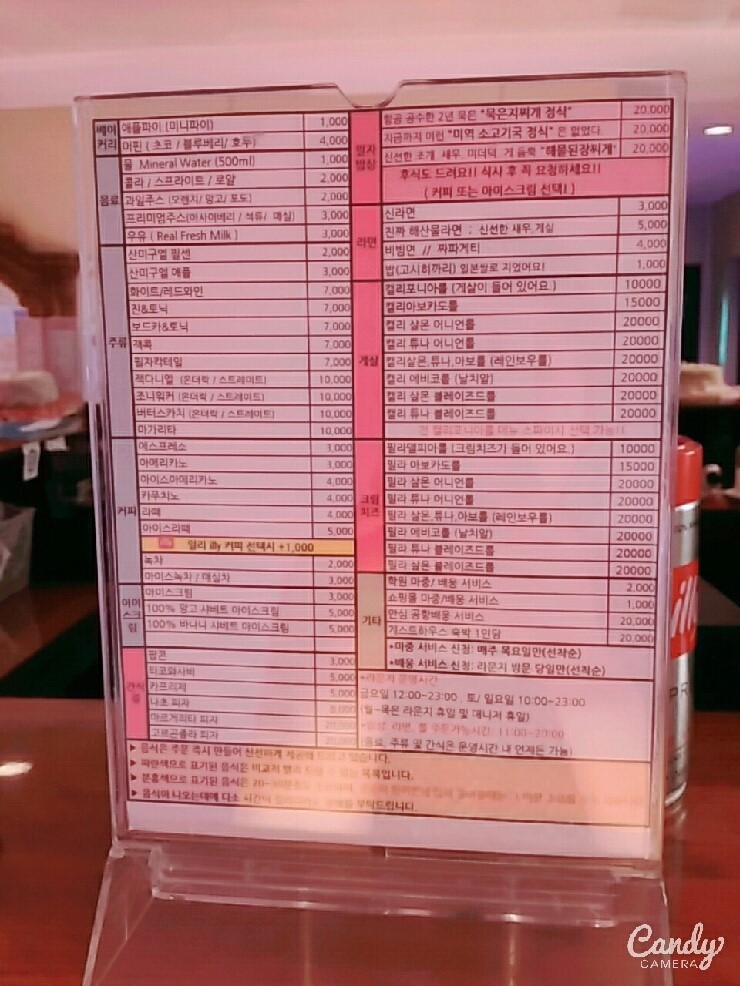 베이커리
애플파이 (미니파이) 1,000
머핀 ( 초코 / 블루베리/ 호두) 4,000
음료
물 Mineral Water (500ml) 1,000
콜라 / 스프라이트 / 로얄 2,000
과일주스 (오렌지/ 망고/ 포도) 2,000
프리미엄주스(아사이베리 / 석류/ 매실) 3,000
우유 ( Real Fresh Milk ) 3,000
주류
산미구엘 필센 2,000
산미구엘 애플 3,000
화이트/레드와인 7,000
진&토닉 7,000
보드카&토닉 7,000
잭콕 7,000
필자칵테일 7,000
잭다니엘 (온더락 / 스트레이트) 10,000
조니워커 (온더락 / 스트레이트) 10,000
버터스카치 (온더락 / 스트레이트) 10,000
마가리타 10,000
커피
에스프레소 3,000
아메리카노 3,000
아이스아메리카노 4,000
카푸치노 4,000
라떼 4,000
아이스라떼 5,000
일리 illy 커피 선택시 +1,000
녹차 2,000
아이스녹차 / 매실차 3,000
아이스크림
아이스크림 3,000
100% 망고 샤베트 아이스크림 5,000
100% 바나나 샤베트 아이스크림 5,000
간식
팝콘 3,000
타코와사비 5,000
카프리제 5,000
나초 피자 8,000
마르게리타 피자 20,000
고르곤졸라 피자 20,000
▶ 음식은 주문 즉시 만들어 신선하게 제공해 드리고 있습니다.
▶ 파란색으로 표기된 음식은 비교적 빨리 목록입니다.
▶ 분홍색으로 표기된 음식은 20~30분
▶ 음식이 나오는데에 다소 시간이 부탁드립니다.
필자밥상
항공 공수한 2년 묵은 "묵은지찌개 정식" 20,000
지금까지 이런 "미역 소고기국 정식" 은 없었다. 20,000
신선한 조개 새우, 미더덕, 게 듬뿍 "해물된장찌개" 20,000
후식도 드려요!! 식사 후 꼭 요청하세요!!
( 커피 또는 아이스크림 선택! )
라면
신라면 3,000
진짜 해산물라면 ; 신선한 새우,게살 5,000
비빔면 // 짜파게티 4,000
밥(고시히까리) 일본쌀로 지었어요! 1,000
게살
캘리포니아롤 (게살이 들어 있어요.) 10000
캘리아보카도롤 15000
캘리 살몬 어니언롤 20000
캘리 튜나 어니언롤 20000
캘리살몬,튜나,아보롤 (레인보우롤) 20000
캘리 에비코롤 (날치알) 20000
캘리 살몬 블레이즈드롤 20000
캘리 튜나 블레이즈드롤 20000
전 캘리포니아롤 메뉴 스파이시 선택 가능!!
크림치즈
필라델피아롤 (크림치즈가 들어 있어요.) 10000
필라 아보카도롤 15000
필라 살몬 어니언롤 20000
필라 튜나 어니언롤 20000
필라 살몬,튜나,아보롤 (레인보우롤) 20000
필라 에비코롤 (날치알) 20000
필라 튜나 블레이즈드롤 20000
필라 살몬 블레이즈드롤 20000
기타
학원 마중/ 배웅 서비스 2,000
쇼핑몰 마중/배웅 서비스 1,000
안심 공항배웅 서비스 20,000
게스트하우스 숙박 1인당 20,000
*마중 서비스 신청: 매주 목요일만(선착순)
*배웅 서비스 신청: 라운지 방문 당일만(선착순)
*라운지 운영시간
금요일 12:00~23:00 토/ 일요일 10:00~23:00
(월~목은 라운지 휴일 및 매니저 휴일)
라면, 롤 주문가능시간: 11:00~20:00
(음료, 주류 및 간식은 운영시간 내 언제든 가능)
illy
Candy
CAMERA